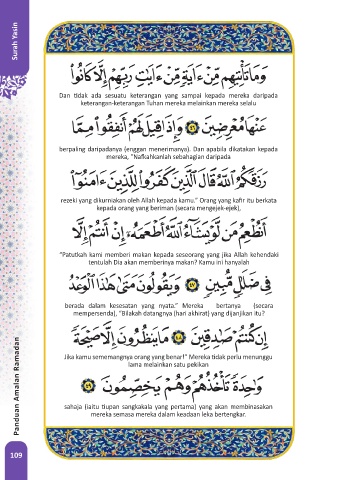 Surah Yasin
وَمَا تَأْتِيهِم مِّنْ ءَايَةٍ مِّنْ ءَايَٰتِ رَبِّهِمْ إِلَّا كَانُوا۟
Dan tidak ada sesuatu keterangan yang sampai kepada mereka daripada
keterangan-keterangan Tuhan mereka melainkan mereka selalu
عَنْهَا مُعْرِضِينَ ٤٦ وَإِذَا قِيلَ لَهُمْ أَنفِقُوا۟ مِمَّا
berpaling daripadanya (enggan menerimanya). Dan apabila dikatakan kepada
mereka, "Nafkahkanlah sebahagian daripada
رَزَقَكُمُ ٱللَّهُ قَالَ ٱلَّذِينَ كَفَرُوا۟ لِلَّذِينَ ءَامَنُوٓا۟
rezeki yang dikurniakan oleh Allah kepada kamu." Orang yang kafir itu berkata
kepada orang yang beriman (secara mengejek-ejek),
أَنُطْعِمُ مَن لَّوْ يَشَآءُ ٱللَّهُ أَطْعَمَهُۥٓ إِنْ أَنتُمْ إِلَّا
"Patutkah kami memberi makan kepada seseorang yang jika Allah kehendaki
tentulah Dia akan memberinya makan? Kamu ini hanyalah
فِى ضَلَٰلٍ مُّبِينٍ ٤٧ وَيَقُولُونَ مَتَىٰ هَٰذَا ٱلْوَعْدُ
berada dalam kesesatan yang nyata." Mereka bertanya (secara
mempersenda), "Bilakah datangnya (hari akhirat) yang dijanjikan itu?
إِن كُنتُمْ صَٰدِقِينَ ٤٨ مَا يَنظُرُونَ إِلَّا صَيْحَةً
Jika kamu sememangnya orang yang benar!" Mereka tidak perlu menunggu
lama melainkan satu pekikan
وَٰحِدَةً تَأْخُذُهُمْ وَهُمْ يَخِصِّمُونَ ٤٩
sahaja (iaitu tiupan sangkakala yang pertama) yang akan membinasakan
mereka semasa mereka dalam keadaan leka bertengkar.
Panduan Amalan Ramadan
109